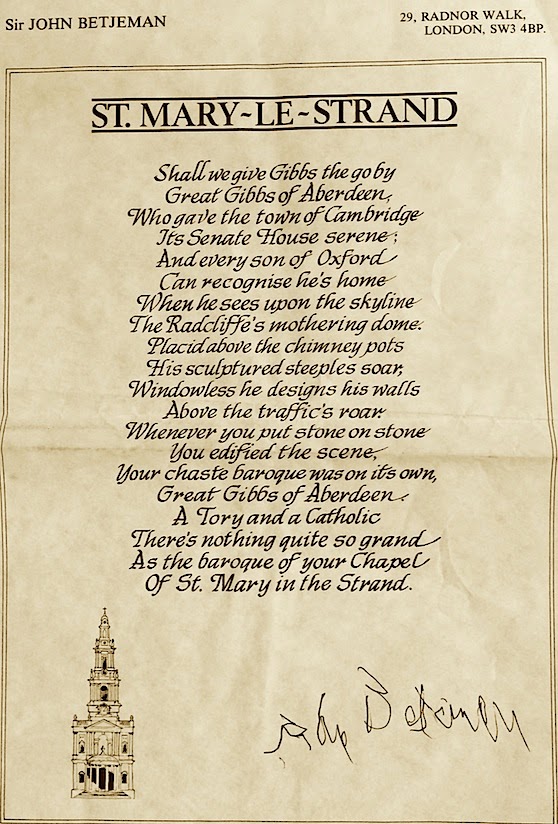 Sir JOHN BETJEMAN
29, RADNOR WALK,
LONDON, SW3 4BP.
ST. MARY~LE~STRAND
Shall we give Gibbs the go by
Great Gibbs of Aberdeen,
Who gave the town of Cambridge
Its Senate House serene;
And every son of Oxford
Can recognise he's home
When he sees upon the skyline
The Radcliffe's mothering dome.
Placid above the chimney pots
His sculptured steeples soar,
Windowless he designs his walls
Above the traffic's roar.
Whenever you put stone on stone
You edified the scene,
Your chaste baroque was on its own,
Great Gibbs of Aberdeen.
A Tory and a Catholic
There's nothing quite so grand
As the baroque of your Chapel
Of St. Mary in the Strand.
John Betjeman